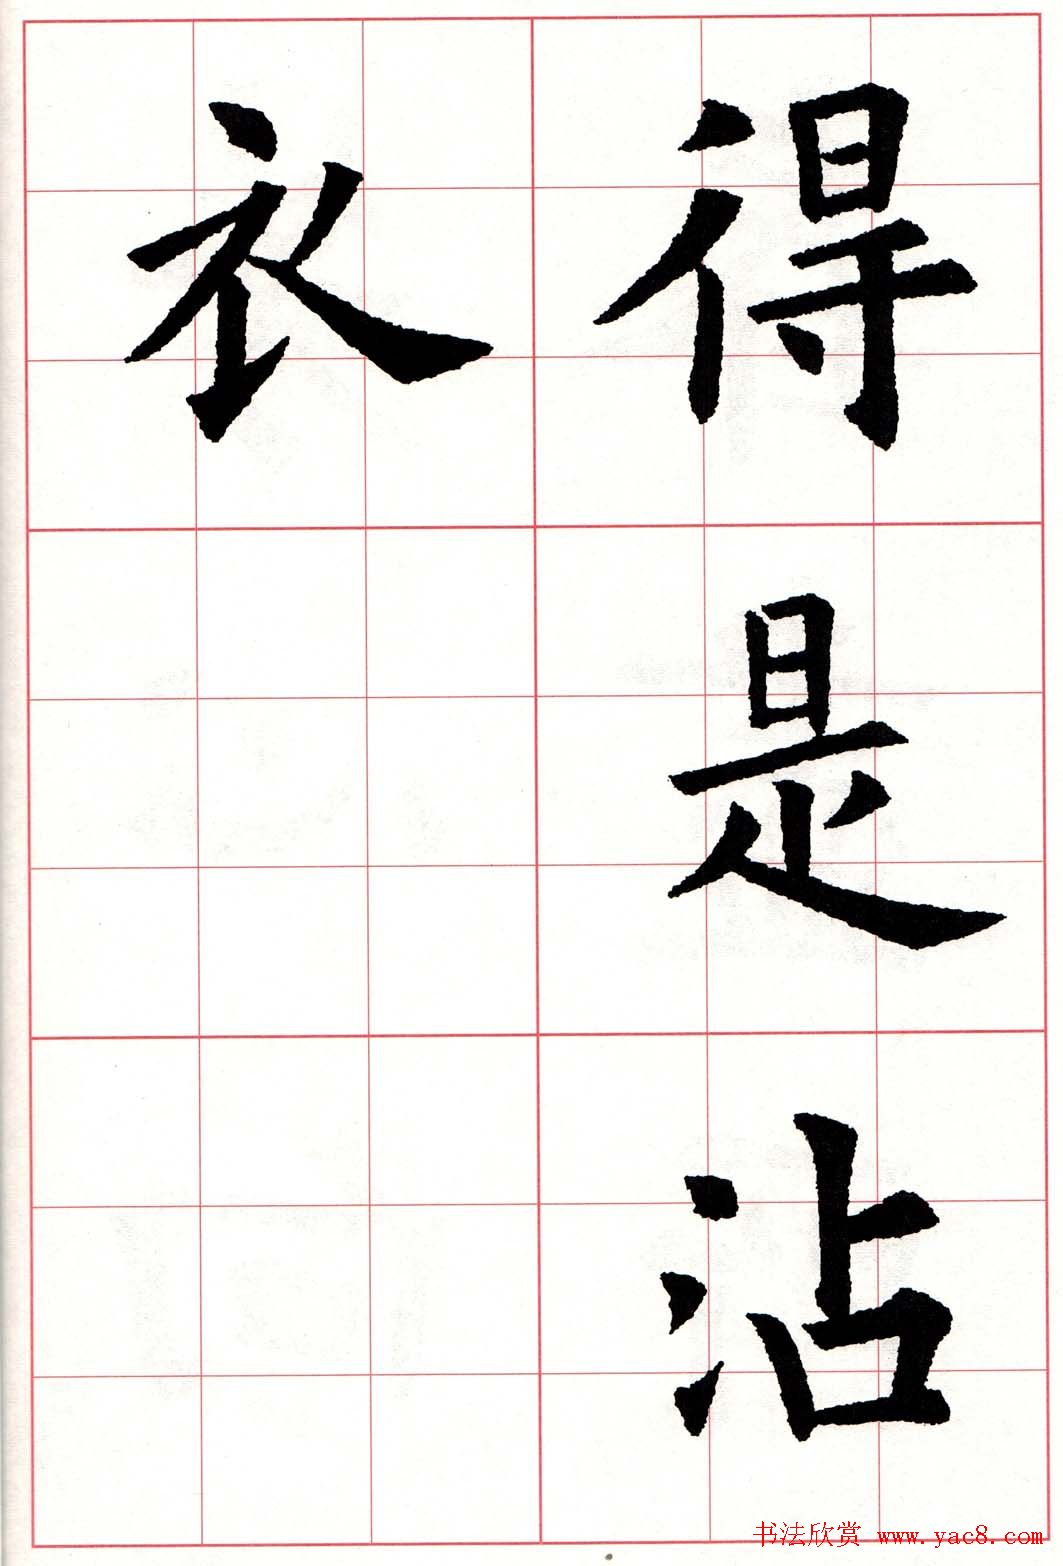 得是沾
衣
书法欣赏 www.yac8.com